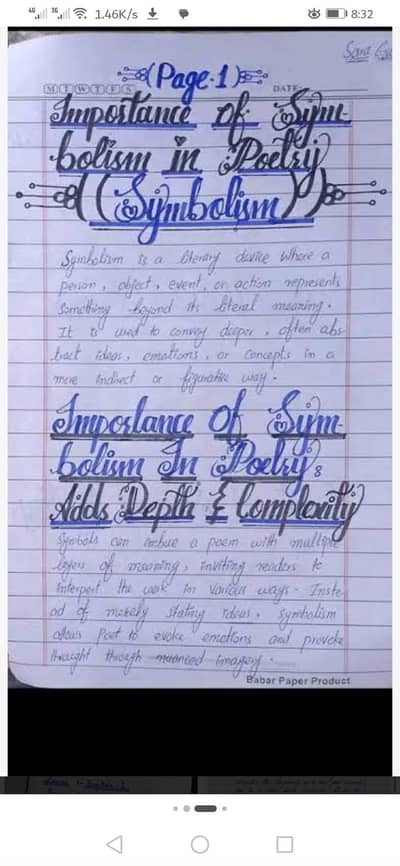 1.46K/s
8:32
Sara
(Page-1)
M T W T F S
DATE:
Importance of Sym-
bolism in Poetry
((Symbolism))
Symbolism is a literary device where a
person, object, event, or action represents
something beyond its literal meaning.
It is used to convey deeper, often abs
tract ideas, emotions, or concepts in a
more indirect or figurative way.
Importance Of Sym-
bolism In Poetry:
Adds Depth & Complexity
Symbols can imbue a poem with multiple
layers of meaning, inviting readers to
interpret the work in various ways. Inste
ad of merely stating ideas, symbolism
allows Poet to evoke emotions and provoke
thought through nuanced imagery.
Babar Paper Product